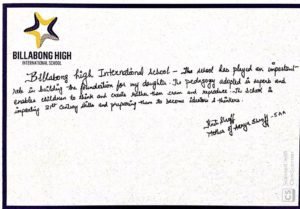 BILLABONG HIGH
INTERNATIONAL SCHOOL
Billabong high International School - The school has played an important
role in building the foundation for my daughter. The pedagogy adopted is superb and
enables children to think and create rather than cram and reproduce. The School is
imparting 21st century skills and preparing them to become ideators & thinkers.
Mother of
CS